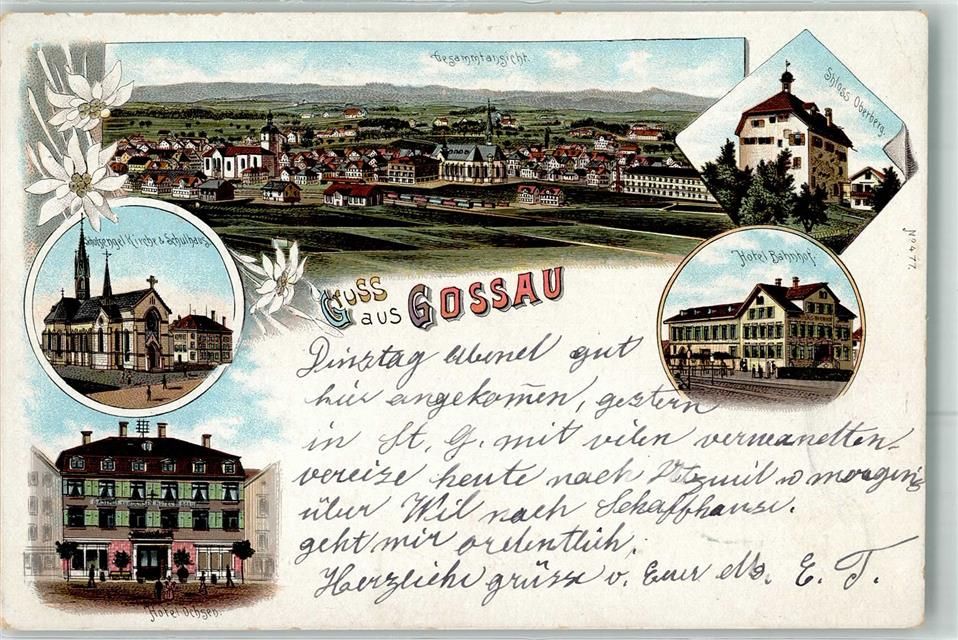 Gesammtansicht.
Schloss Oberberg.
Schutzengel Kirche & Schulhaus.
Hotel Bahnhof.
No 477
Gruss
aus GOSSAU
Dinstag Abend gut
hier angekom̄en, gestern
in St. G. mit vilen verwandten
vereize heute nach u morgen
über Wil nach Schaffhause.
geht mir ordentlich,
Herzliche grüsse v. Euer E. T.
Hotel Ochsen.